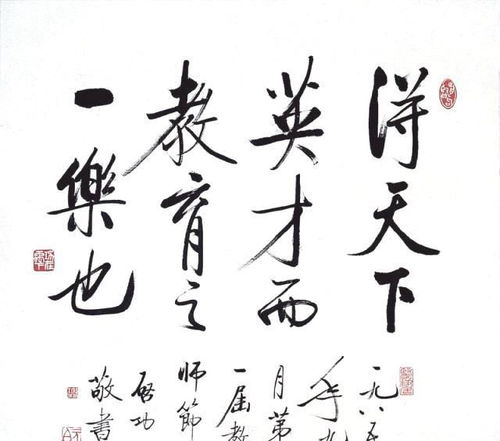 得天下
英才而
教育之
一樂也
一九八五
年九
月第
一屆教
師節
啓功
敬書